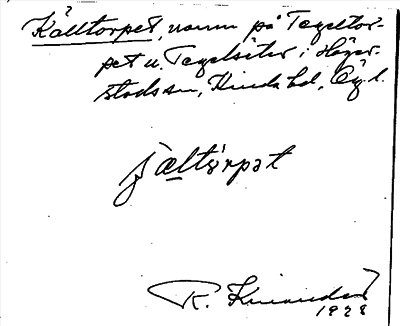 Källtorpet, namn på Tegeltor-
pet u. Tegelsäter i Häger-
stads sn, Kinda hd, Ög l.
jæltorpet
R.
1928